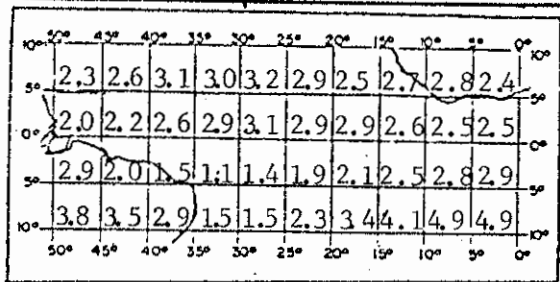 50° 45° 40° 35° 30° 25° 20° 15° 10° 5° 0°
10° 10°
2.3 2.6 3.1 3.0 3.2 2.9 2.5 2.7 2.8 2.4
5° 5°
2.0 2.2 2.6 2.9 3.1 2.9 2.9 2.6 2.5 2.5
0° 0°
2.9 2.0 1.5 1.1 1.4 1.9 2.1 2.5 2.8 2.9
5° 5°
3.8 3.5 2.9 1.5 1.5 2.3 3.4 4.1 4.9 4.9
10° 10°
50° 45° 40° 35° 30° 25° 20° 15° 10° 5° 0°